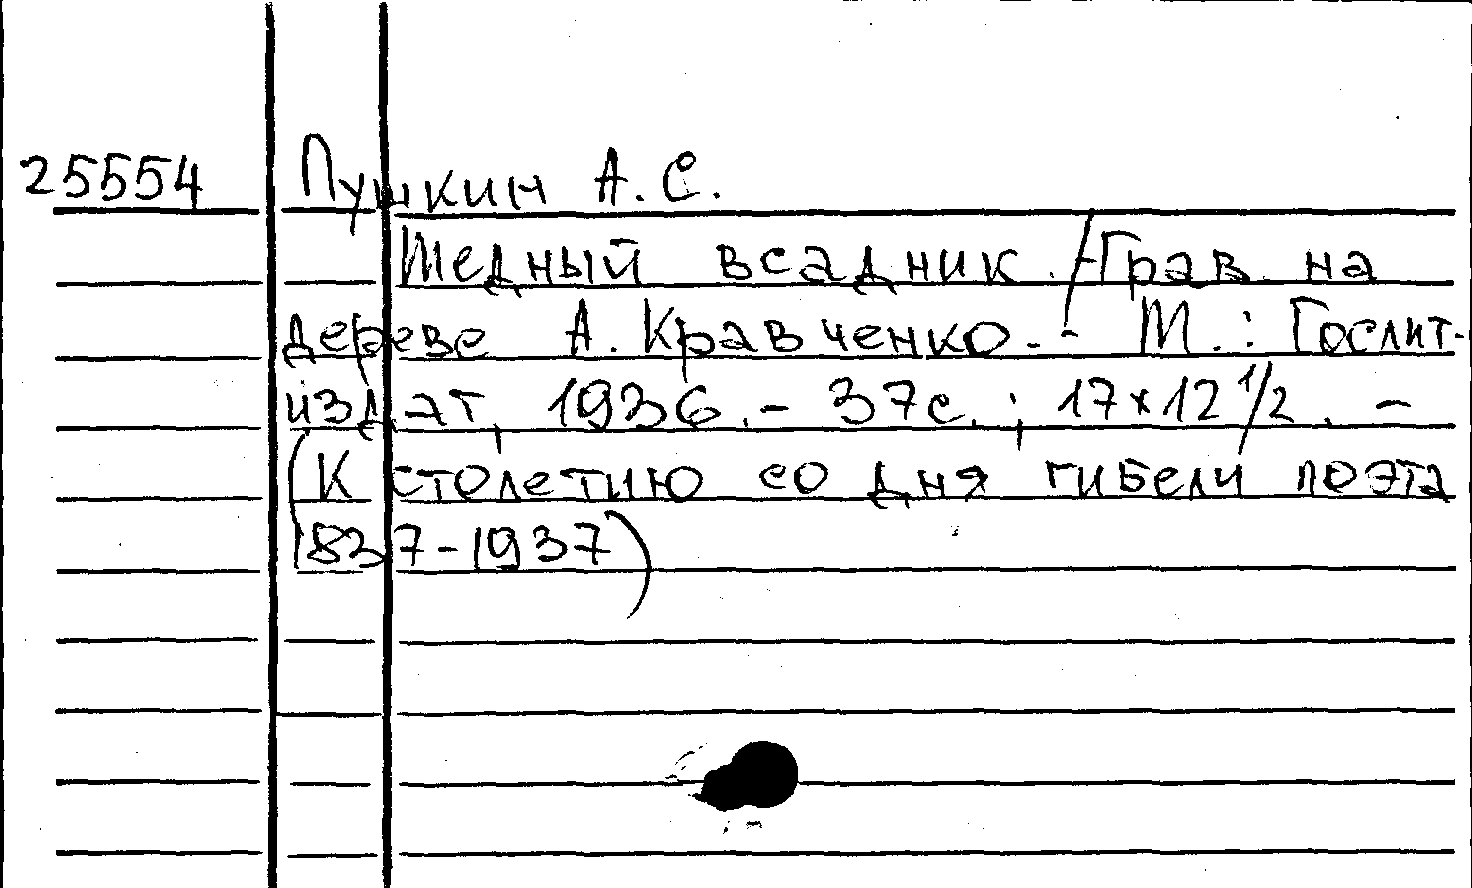 25554 Пушкин А.С.
Медный всадник. / Грав. на
дереве А. Кравченко. - М.: Гослит-
издат, 1936. - 37с.; 17х12 1/2. -
(К столетию со дня гибели поэта
1837-1937)